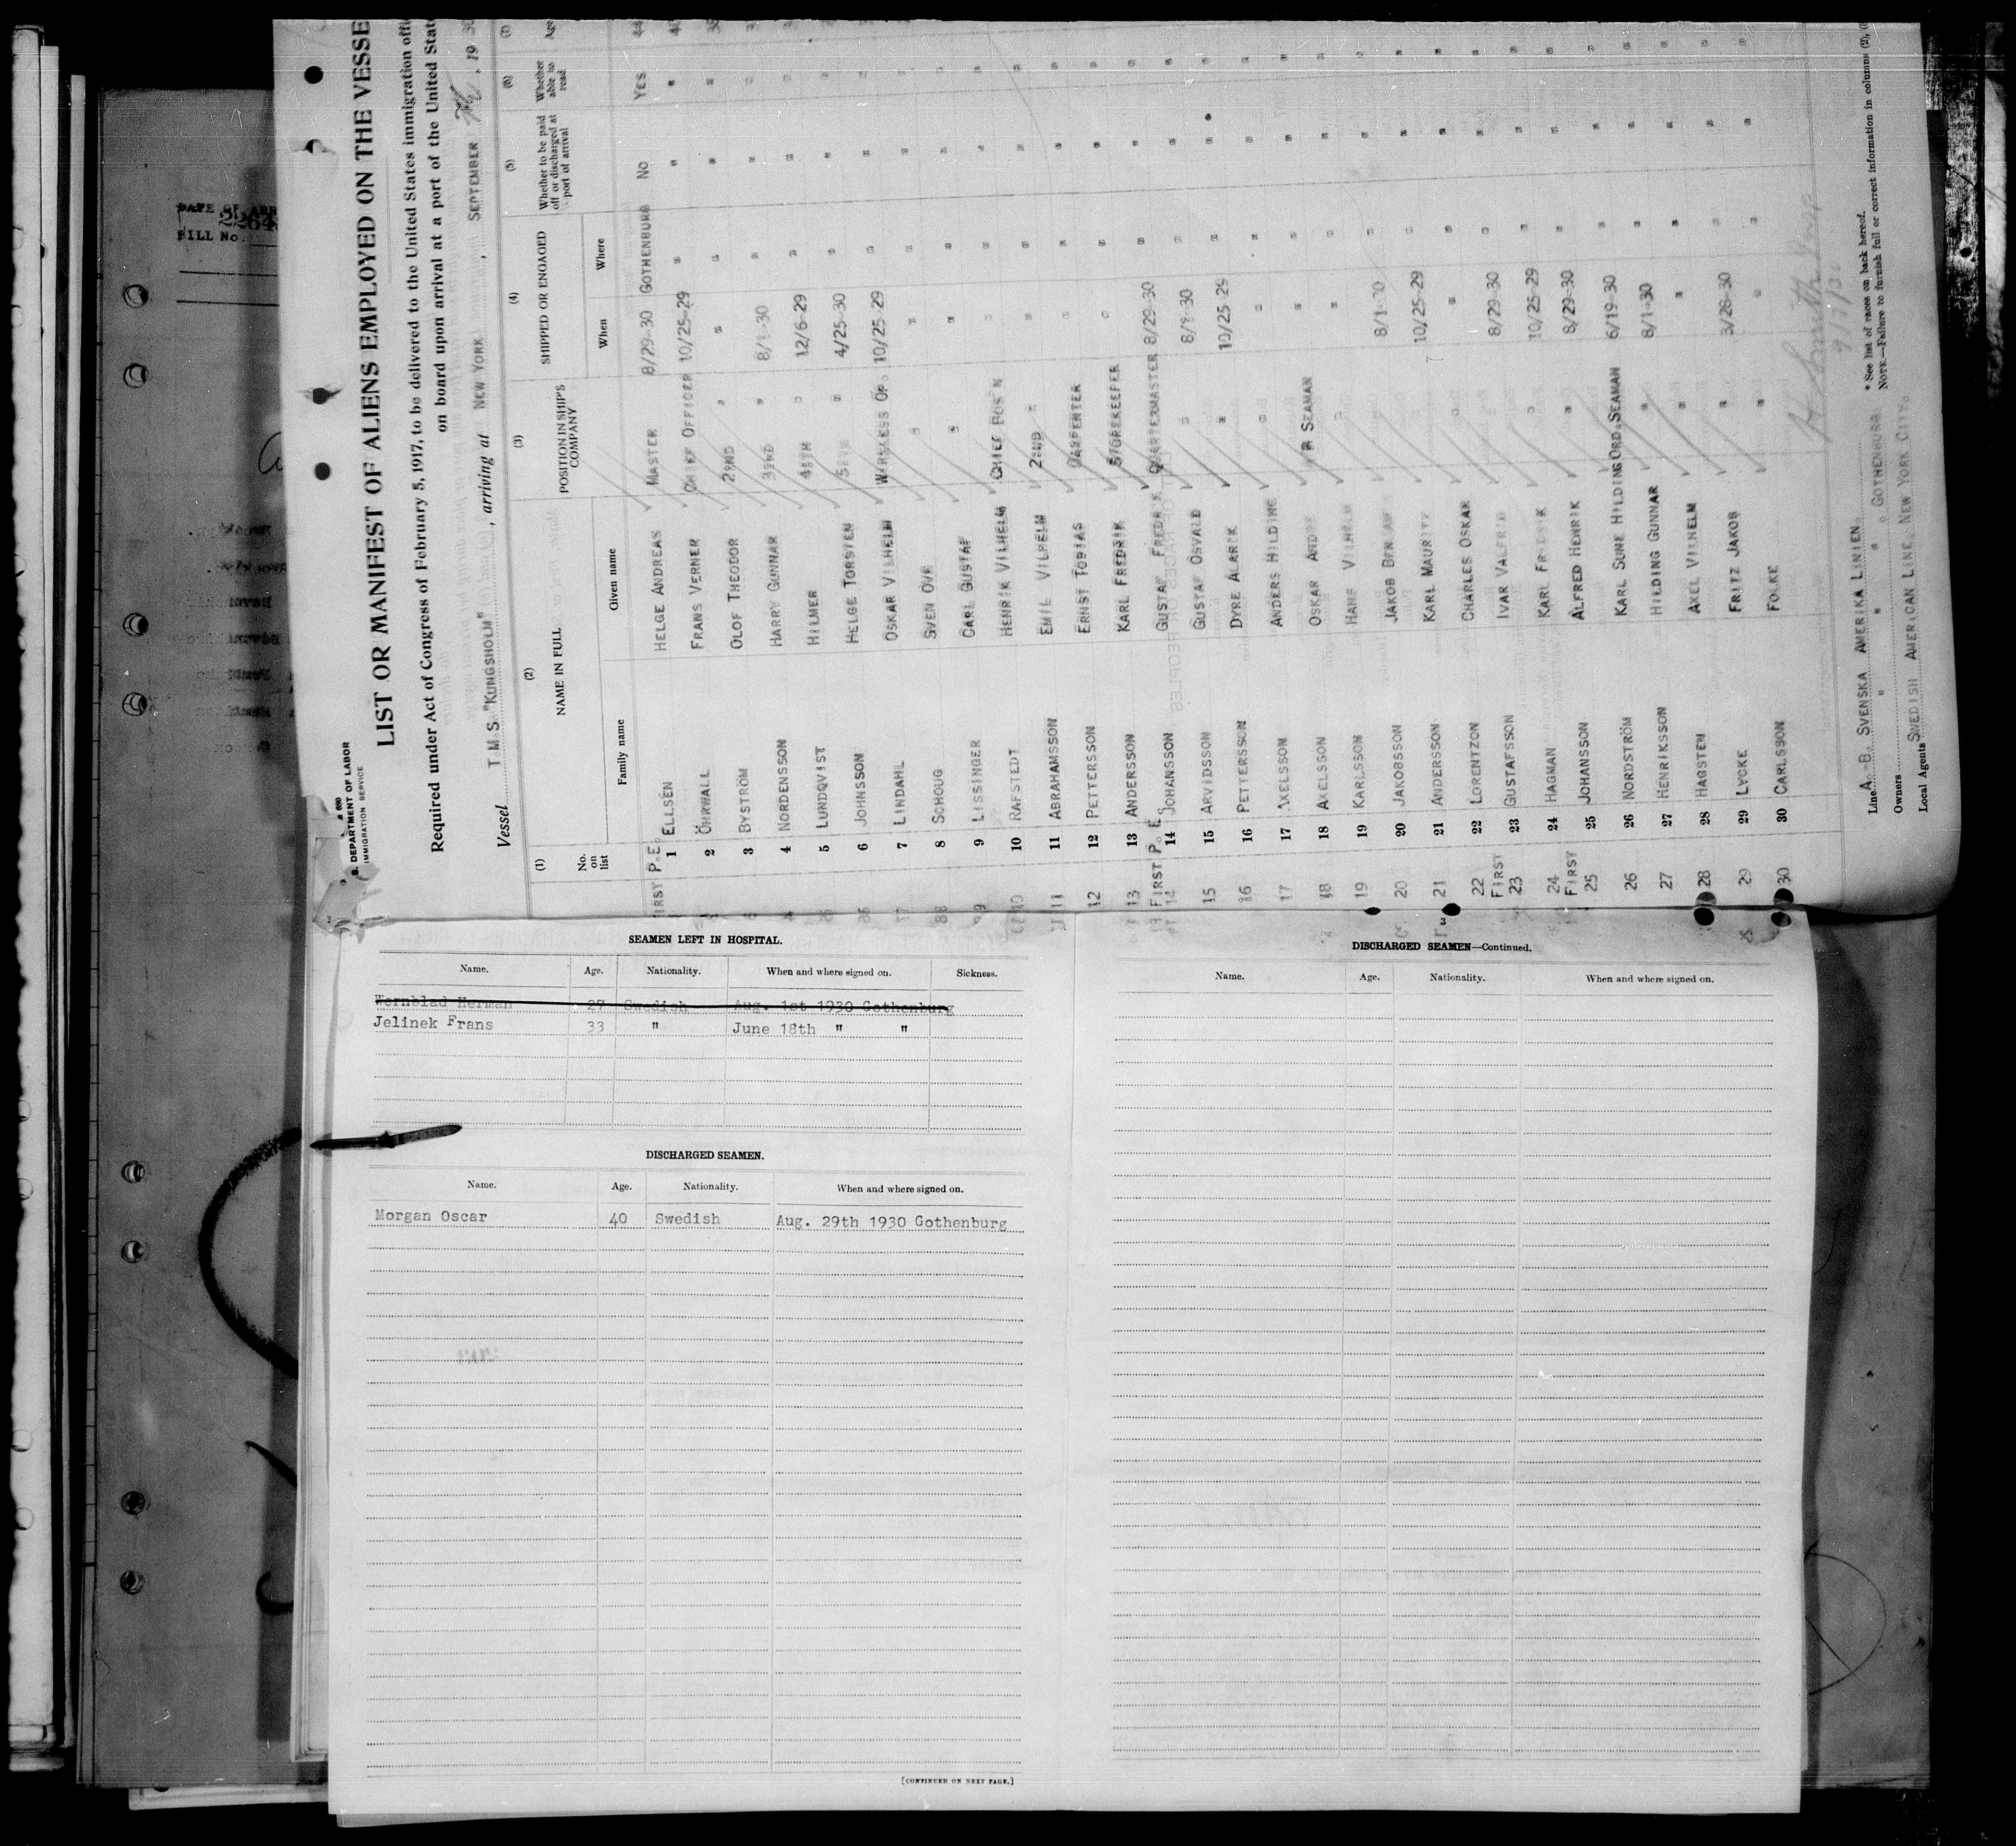 DATE OF ARR
BILL No.
S. DEPARTMENT OF LABOR
IMMIGRATION SERVICE
LIST OR MANIFEST OF ALIENS EMPLOYED ON THE VESSE
Required under Act of Congress of February 5, 1917, to be delivered to the United States immigration offi
on board upon arrival at a port of the United Stat
Vessel T.M.S."KUNGSHOLM" , arriving at NEW YORK , SEPTEMBER 7th , 1930
(1) (2) (3) (4) (5) (6) (7)
No. on list NAME IN FULL POSITION IN SHIP'S COMPANY SHIPPED OR ENGAGED Whether to be paid off or discharged at port of arrival Whether able to read Age
Family name Given name When Where
FIRST P.E.
1 ELLSEN HELGE ANDREAS MASTER 8/29-30 GOTHENBURG No YES
2 ÖHRWALL FRANS VERNER CHIEF OFFICER 10/25-29 " " "
3 BYSTRÖM OLOF THEODOR 2ND " " " " "
4 NORDENSSON HARRY GUNNAR 3RD " 8/1-30 " " "
5 LUNDQVIST HILMER 4TH " 12/6-29 " " "
6 JOHNSSON HELGE TORSTEN 5TH " 4/25-30 " " "
7 LINDAHL OSKAR VILHELM WIRELESS OP. 10/25-29 " " "
8 SCHOUG SVEN OVE " " " " "
9 LISSINGER CARL GUSTAF " " " " "
10 RAFSTEDT HENRIK VILHELM CHIEF BOS'N " " " "
11 ABRAHAMSSON EMIL VILHELM 2ND " " " " "
12 PETTERSSON ERNST TOBIAS CARPENTER " " " "
13 ANDERSSON KARL FREDRIK STOREKEEPER " " " "
FIRST P. E.
14 JOHANSSON GUSTAF FREDRIK QUARTERMASTER 8/29-30 " " "
15 ARVIDSSON GUSTAF OSVALD " 8/1-30 " " "
16 PETTERSSON DYRE ALARIK " 10/25-29 " " "
17 AXELSSON ANDERS HILDING " " " " "
18 AXELSSON OSKAR SEAMAN " " " "
19 KARLSSON HANS VILHELM " " " " "
20 JAKOBSSON JAKOB " 8/1-30 " " "
21 ANDERSSON KARL MAURITZ " 10/25-29 " " "
22 LORENTZON CHARLES OSKAR " " " " "
FIRST
23 GUSTAFSSON IVAR VALFRID " 8/29-30 " " "
24 HAGMAN KARL FREDRIK " 10/25-29 " " "
FIRST
25 JOHANSSON ALFRED HENRIK " 8/29-30 " " "
26 NORDSTRÖM KARL SUNE HILDING ORD.SEAMAN 6/19-30 " " "
27 HENRIKSSON HILDING GUNNAR " 8/1-30 " " "
28 HAGSTEN AXEL VILHELM " " " " "
29 LYCKE FRITZ JAKOB " 3/28-30 " " "
30 CARLSSON FOLKE " " " " "
Line A.-B. SVENSKA AMERIKA LINIEN
Owners " " " " GOTHENBURG
Local Agents SWEDISH AMERICAN LINE. NEW YORK CITY.
* See list of races on back hereof.
NOTE.—Failure to furnish full or correct information in columns (2), (
SEAMEN LEFT IN HOSPITAL.
Name. Age. Nationality. When and where signed on. Sickness.
Wernblad Herman 27 Swedish Aug. 1st 1930 Gothenburg
Jelinek Frans 33 " June 18th " "
DISCHARGED SEAMEN.
Name. Age. Nationality. When and where signed on.
Morgan Oscar 40 Swedish Aug. 29th 1930 Gothenburg
[CONTINUED ON NEXT PAGE.]
3
DISCHARGED SEAMEN—Continued.
Name. Age. Nationality. When and where signed on.